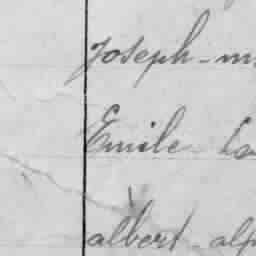 Joseph-m
Emile
albert-alp